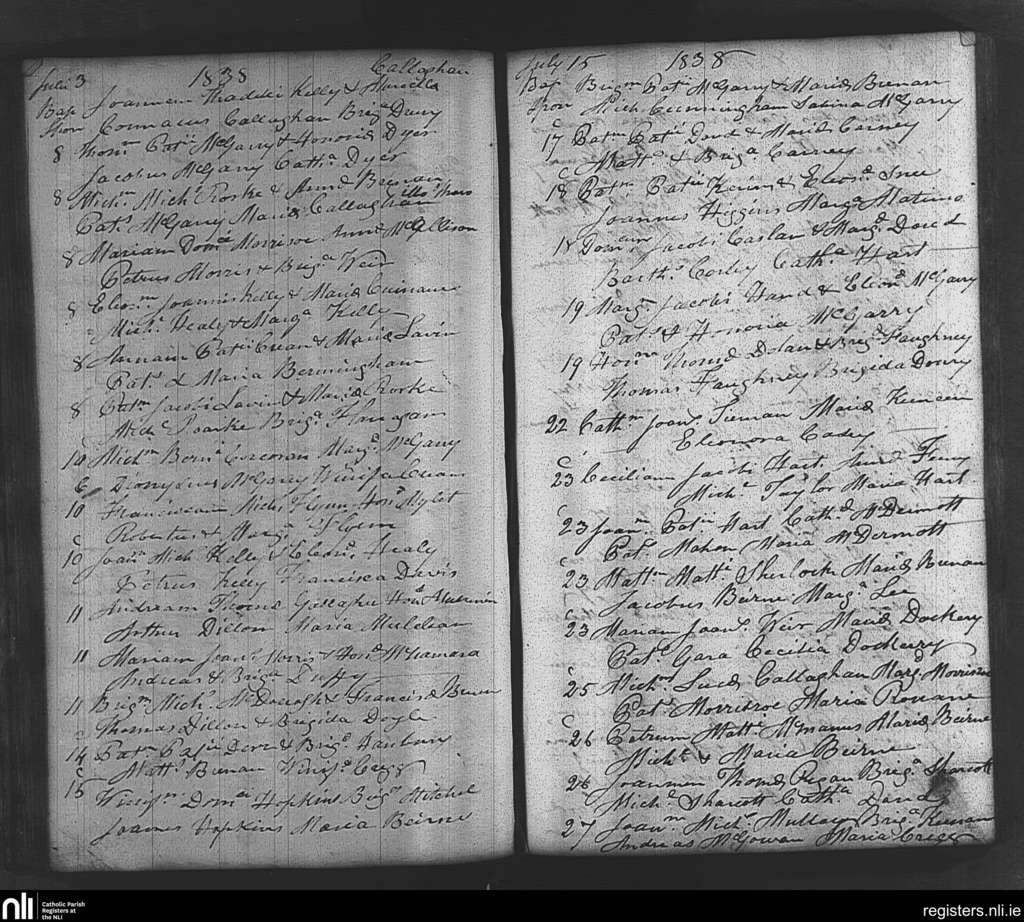 Juli 3 1838 Callaghan
Bap Joannem Thaddei Kelly & Marcella
Spon Cormacus Callaghan Brigᵃ Drury
8 Thomᵐ Patⁱⁱ McGarry & Honoriæ Dyer
Jacobus McGarry Cathᵃ Dyer
8 Michᵐ Michˡ Roske & Annæ Brenan
Patˢ McGarry Maria Callaghan
8 Mariam Domᶜⁱ Morrisoe Annæ McAllison
Petrus Morris & Brigᵃ Weir
8 Eleoⁿᵐ Joannis Kelly & Mariæ
Michˡ Healy & Margᵃ Kelly
8 Annam Patⁱⁱ Crean & Mariæ Lavin
Patˢ & Maria Bermingham
8 Patᵐ Jacobi Lavin & Mariæ Rorke
Michˡ Roarke Brigᵃ Flanagan
10 Michᵐ Bernⁱ Corcoran Margᵃ McGarry
Dionysius McGarry Winifᵃ Crean
10 Franciscam Michˡ Flynn Honᵃ
Robertus & Margᵃ Flynn
10 Joanᵐ Michˡ Kelly & Healy
Petrus Kelly Francisca Davis
11 Andream Thomæ Gallagher Honᵃ
Arthur Dillon Maria Muldean
11 Mariam Joanˢ Morris & Honᵃ McNamara
Andreas & Brigᵃ Duffy
11 Brigᵐ Michˡ McDonogh & Franciscæ
Thomas Dillon & Brigida Doyle
14 Patᵐ Patⁱⁱ & Brigᵃ Hanbury
Mattˢ Brenan Winifᵃ Cregg
15 Winifᵐ Domᶜⁱ Hopkins Brigᵃ Mitchel
Joannes Hopkins Maria Beirne
July 15 1838
Bap Brigᵐ Patⁱⁱ McGarry & Mariæ Brenan
Spon Mich Cunningham Sabina McGarry
17 Patᵐ Patⁱⁱ Dowd & Mariæ Carney
Mattˢ & Brigᵃ Carney
18 Patᵐ Patⁱⁱ Keirns & Eleonᵃ
Joannes Higgins Margᵃ
18 Domᶜᵘᵐ Jacobi Caslan & Margᵃ Dowd
Barthˢ Corley Cathᵃ Hart
19 Margᵐ Jacobi Hand & Eleonᵃ McGarry
Patˢ & Honoria McGarry
19 Honᵐ Thomæ Dolan & Brigᵃ Faughney
Thomas Faughney Brigida Drury
22 Cathᵐ Joanˢ Tiernan Mariæ
Eleonora Casey
23 Ceciliam Jacobi Hart Annæ Finny
Michˡ Taylor Maria Hart
23 Joanᵐ Patⁱⁱ Hart Cathᵃ McDermott
Patˢ Mahon Maria McDermott
23 Mattᵐ Mattⁱ Sherlock Mariæ Brenan
Jacobus Beirne Margᵃ Lee
23 Mariam Joanˢ Weir Mariæ Dockery
Patˢ Gara Cecilia Dockery
25 Michᵐ Lucæ Callaghan Margᵃ Morrisroe
Patˢ Morrisroe Maria Rouane
26 Petrum Mattⁱ McManus Mariæ Beirne
Michˡ & Maria Beirne
26 Joannem Thomæ Regan Brigᵃ Sharcott
Michˡ Sharcott Cathᵃ Dowd
27 Joanᵐ Michˡ Mullany Brigᵃ Keenan
Andreas McGowan Maria Cregg
nli Catholic Parish
Registers at
the NLI
registers.nli.ie